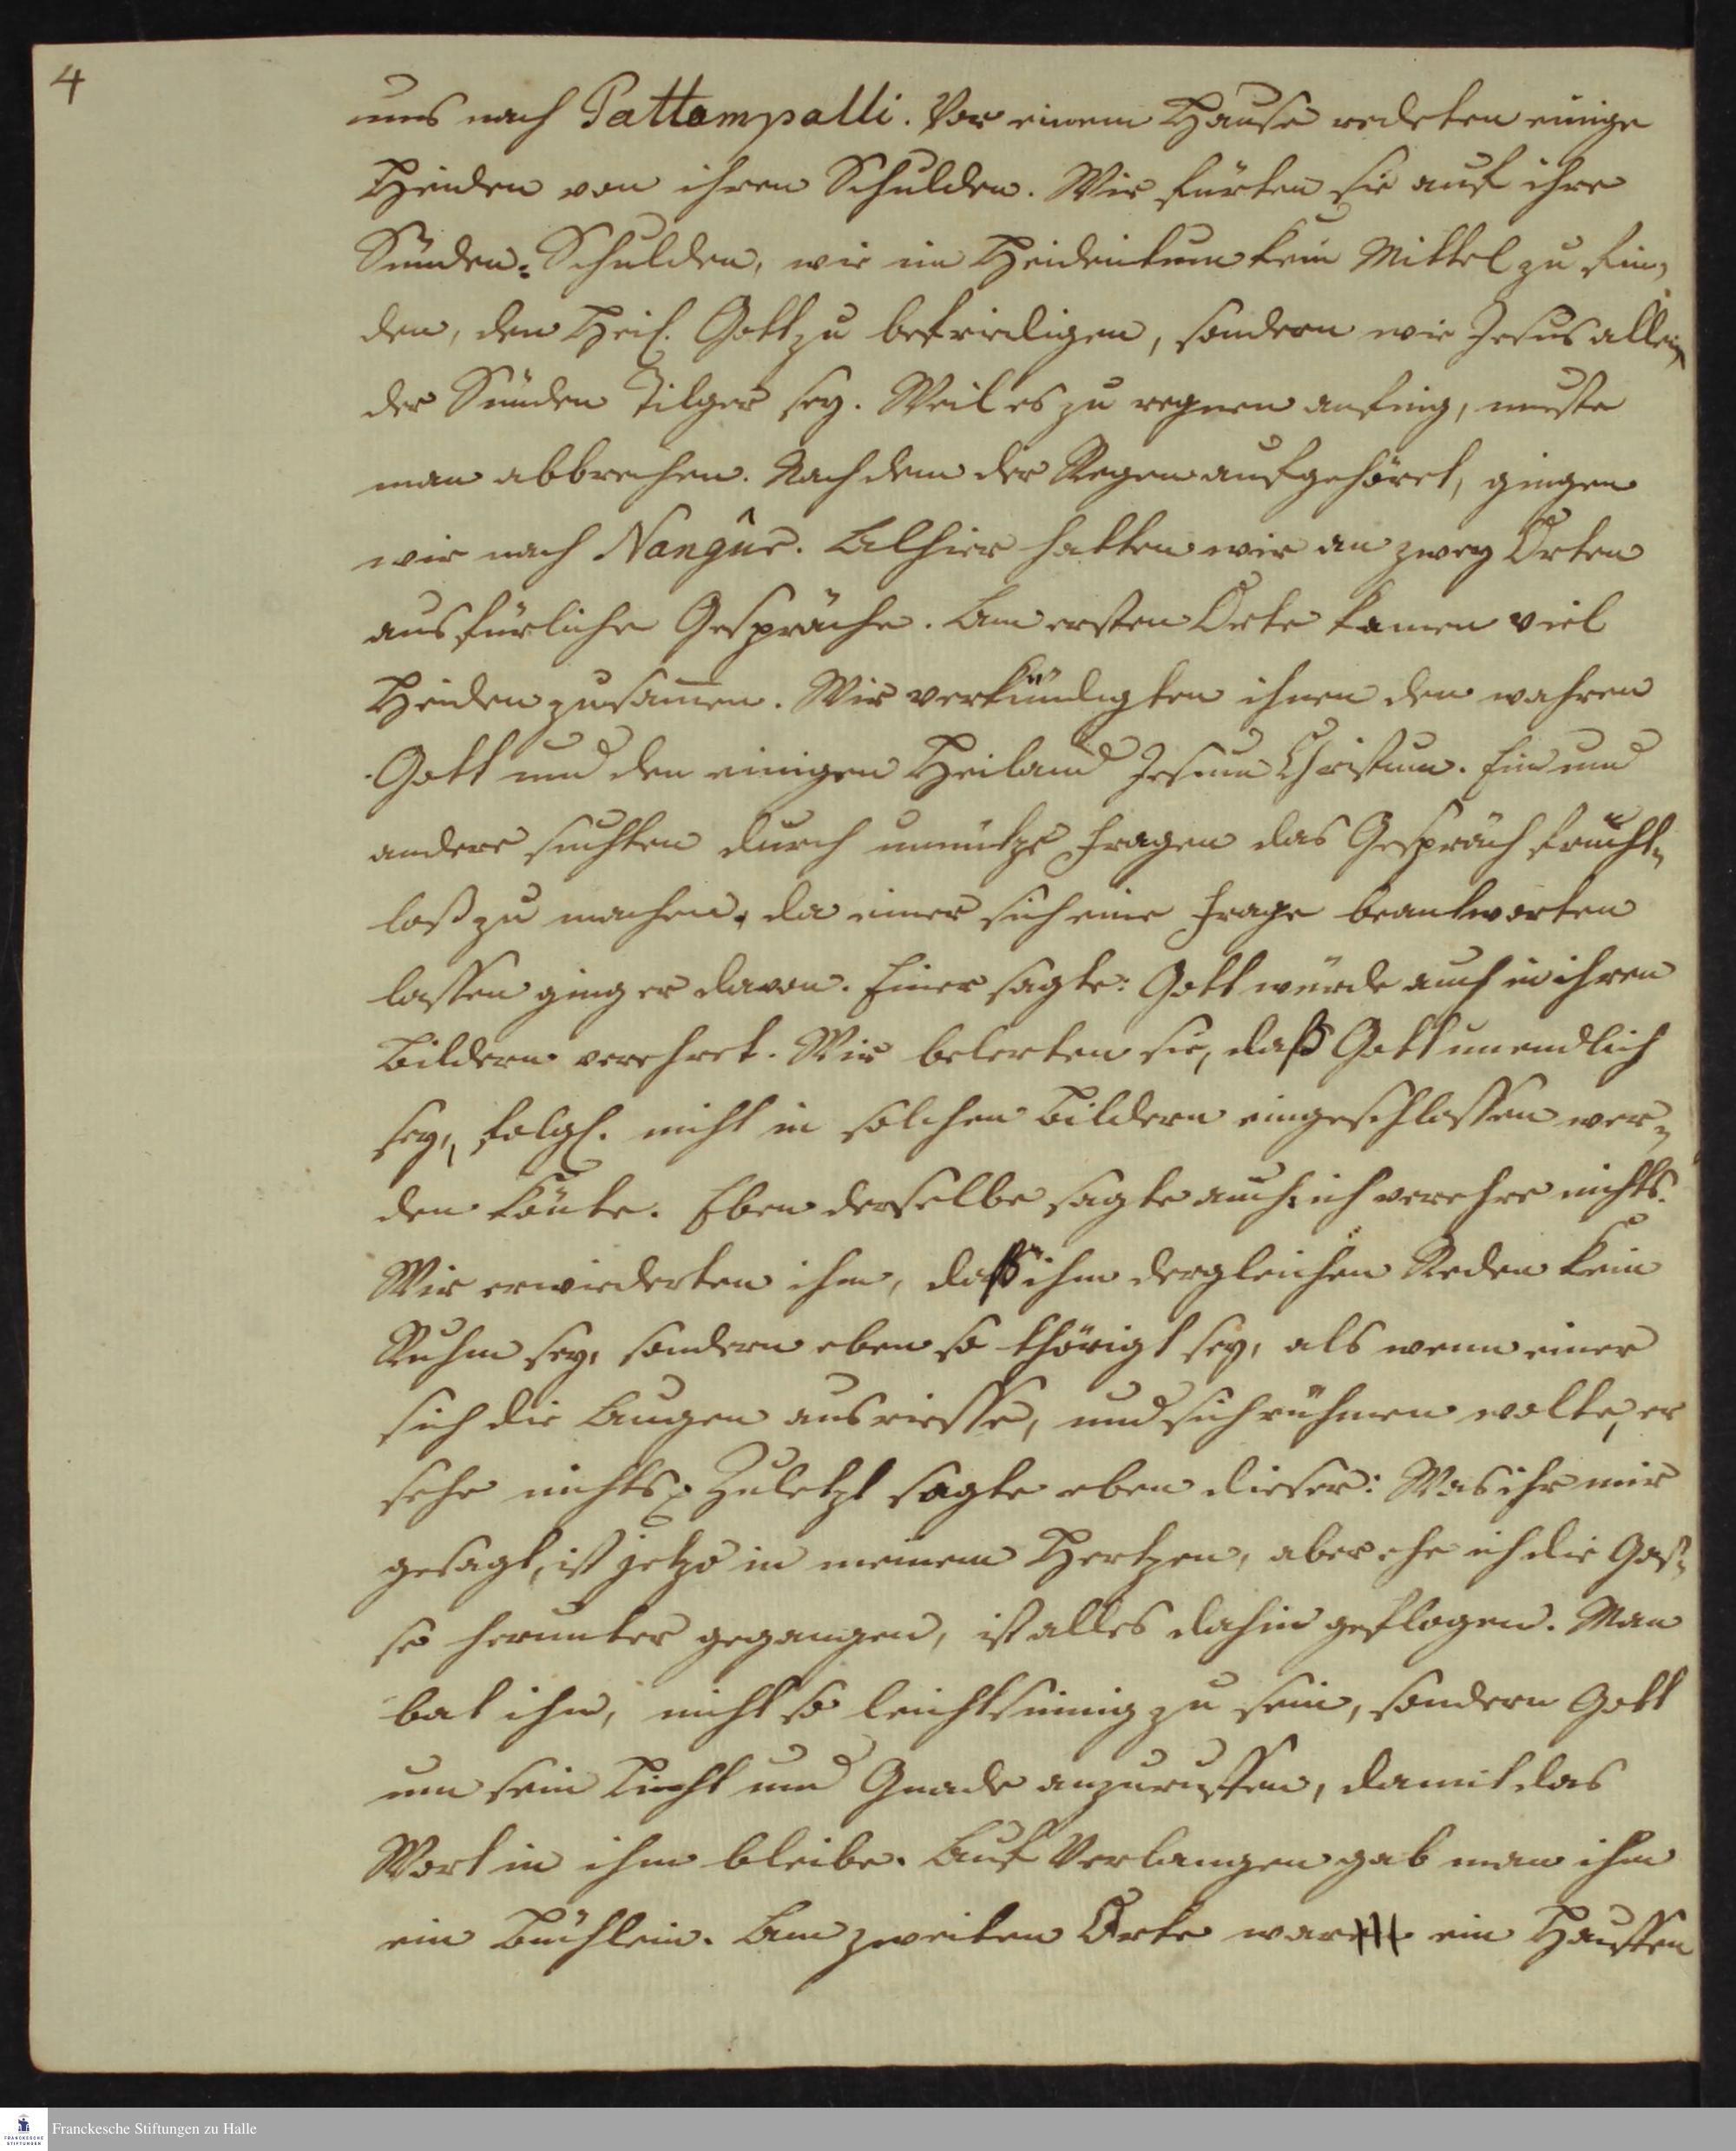 4
uns nach Pattampalli. Vor einem Hause redeten einige
Heiden von ihren Schulden. Wir fürten sie auf ihre
Sünden-Schulden, wie im Heidentum kein Mittel zu fin,
den, den Heil. Gott zu befriedigen, sondern wie Jesus allein
der Sünden Tilger sey. Weil es zu regnen anfing, muste
man abbrechen. Nachdem der Regen aufgehöret, gingen
wir nach Nangûr. Alhier hatten wir an zwey Orten
ausfürliche Gespräche. Am ersten Orte kamen viel
Heiden zusam̅en. Wir verkündigten ihnen den wahren
Gott und den einigen Heiland Jesum Christum. Ein und
andere suchten durch unnütze Fragen das Gespräch frucht„
loß zu machen, da einer sich eine Frage beantworten
lassen ging er davon. Einer sagte: Gott würde auch in ihren
Bildern verehret. Wir belerten sie, daß Gott unendlich
sey, folgl. nicht in solchen Bildern eingeschlossen wer„
den könte. Eben derselbe sagte auch: ich verehre nichts.
Wir erwiederten ihm, daß ihm dergleichen Reden kein
Ruhm sey, sondern eben so thörigt sey, als wenn einer
sich die Augen ausriesse, und sich rühmen wolte, er
sehe nichts. Zuletzt sagte eben dieser: Was ihr mir
gesagt, ist jetzo in meinem Hertzen, aber ehe ich die Gas„
se herunter gegangen, ist alles dahin geflogen. Man
bat ihn, nicht so leichtsinnig zu sein, sondern Gott
um sein Licht und Gnade anzuruffen, damit das
Wort in ihm bleibe. Auf Verlangen gab man ihm
ein Büchlein. Am zweiten Orte war ein Hauffen
FRANCKESCHE STIFTUNGEN
Franckesche Stiftungen zu Halle